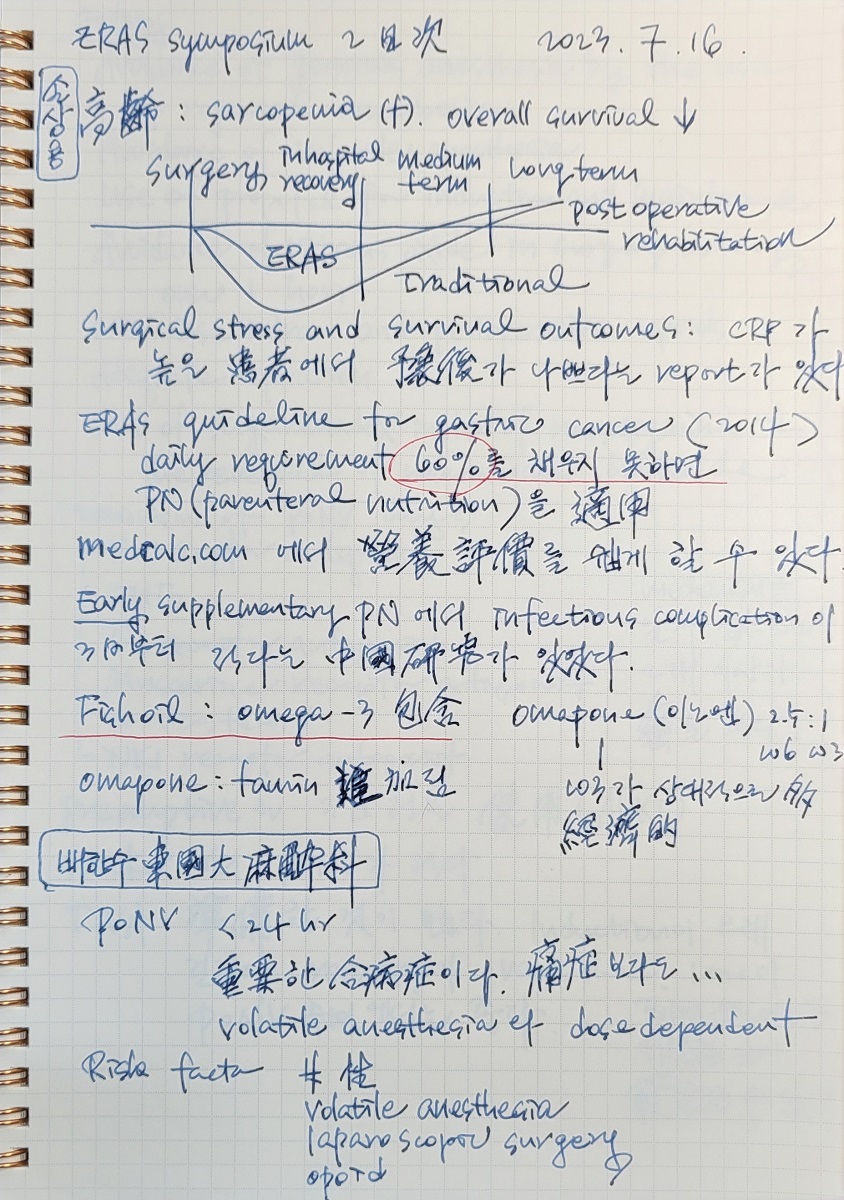 ERAS symposium 2日次 2023. 7. 16.
손상용
高齡 : sarcopenia (+). overall survival ↓
surgery inhospital recovery medium term long term
postoperative rehabilitation
ERAS
traditional
surgical stress and survival outcomes : CRP가
높은 患者에서 豫後가 나쁘다는 report가 있다
ERAS guideline for gastric cancer (2014)
daily requirement 60%를 채우지 못하면
PN (parenteral nutrition)을 適用
medcalc.com 에서 營養評價를 쉽게 할 수 있다.
Early supplementary PN에서 infectious complication이
적다는 中國硏究가 있었다.
Fishoil : omega-3 包含 omapone (이노엔) 2.5 : 1
ω6 ω3
omapone : 加됨 ω3가 상대적으로 多
經濟的
배한수 東國大 麻醉科
PONV < 24 hr
重要한 合病症이다. 痛症보다도 ...
volatile anesthesia 에 dose dependent
Risk factor 女性
volatile anesthesia
laparoscopic surgery
opoid